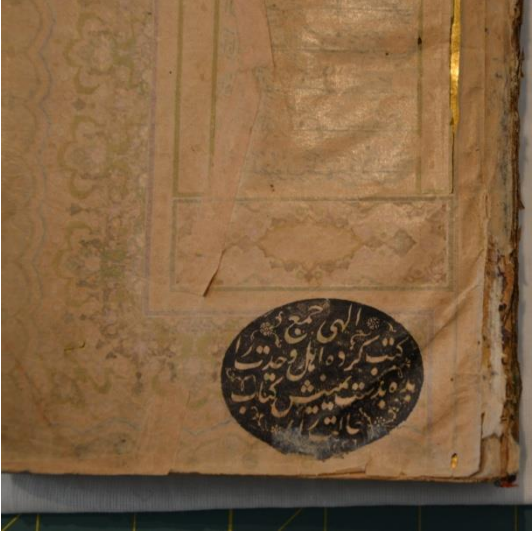 الهی جمع
کتب کرده اهل وحدت را
بده بدست یمینش کتاب